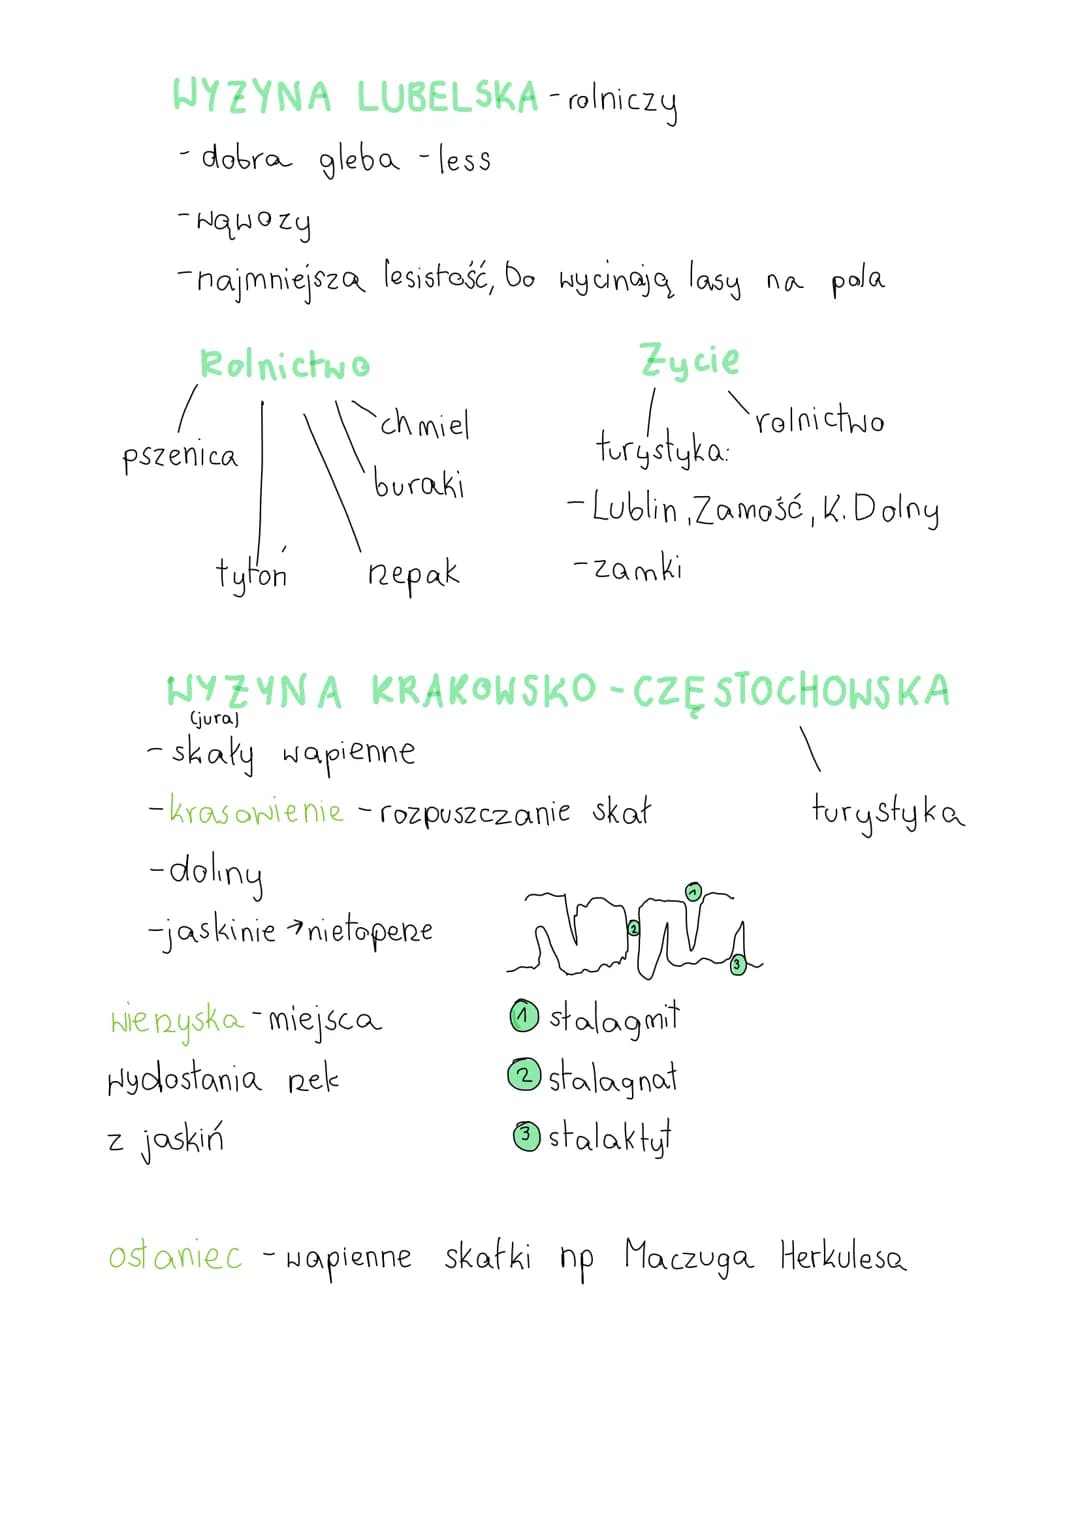 WYŻYNA LUBELSKA - rolniczy
- dobra gleba - less
- wąwozy
- najmniejsza lesistość, bo wycinają lasy na pola
Rolnictwo
Życie
chmiel
rolnictwo
pszenica
turystyka:
buraki
- Lublin, Zamość, K. Dolny
tytoń
rzepak
- zamki
WYŻYNA KRAKOWSKO - CZĘSTOCHOWSKA
(jura)
- skały wapienne
- krasowienie - rozpuszczanie skał
turystyka
- doliny
- jaskinie → nietoperze
1
2
3
wierzyska - miejsca
wydostania rzek
z jaskiń
1 stalagmit
2 stalagnat
3 stalaktyt
ostaniec - wapienne skałki np Maczuga Herkulesa